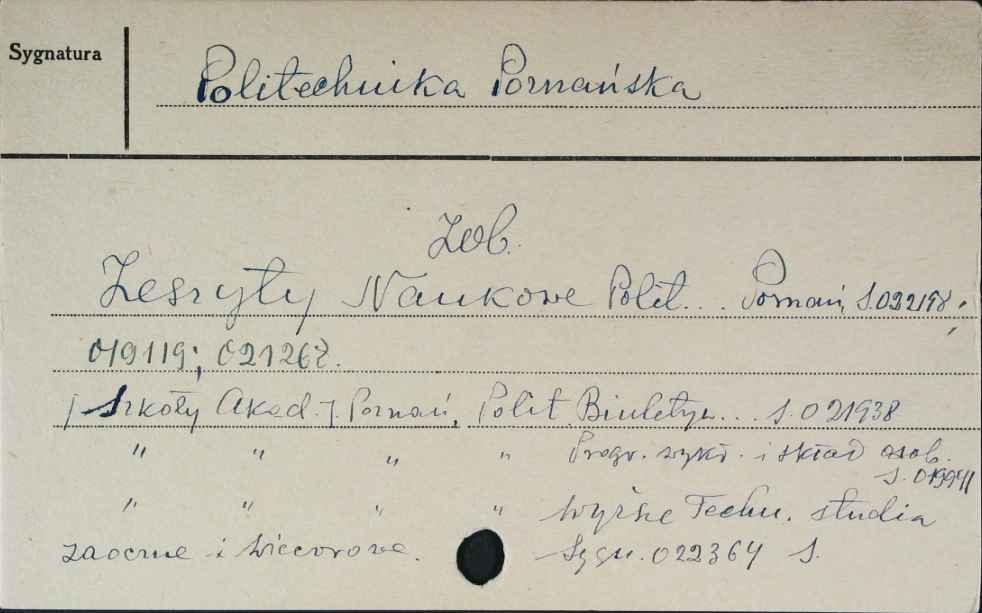 Sygnatura
Politechnika Poznańska
Zob.
Zeszyty Naukowe Polit... Poznań, S.022198;
019119; 021268.
[Szkoły Akad.]. Poznań, Polit. Biuletyn... S.021938
" " " " Progr. wykł. i skład osob.
S. 019941
" " " " Wyższe Techn. studia
zaoczne i wieczorowe. Sygn. 022364 S.